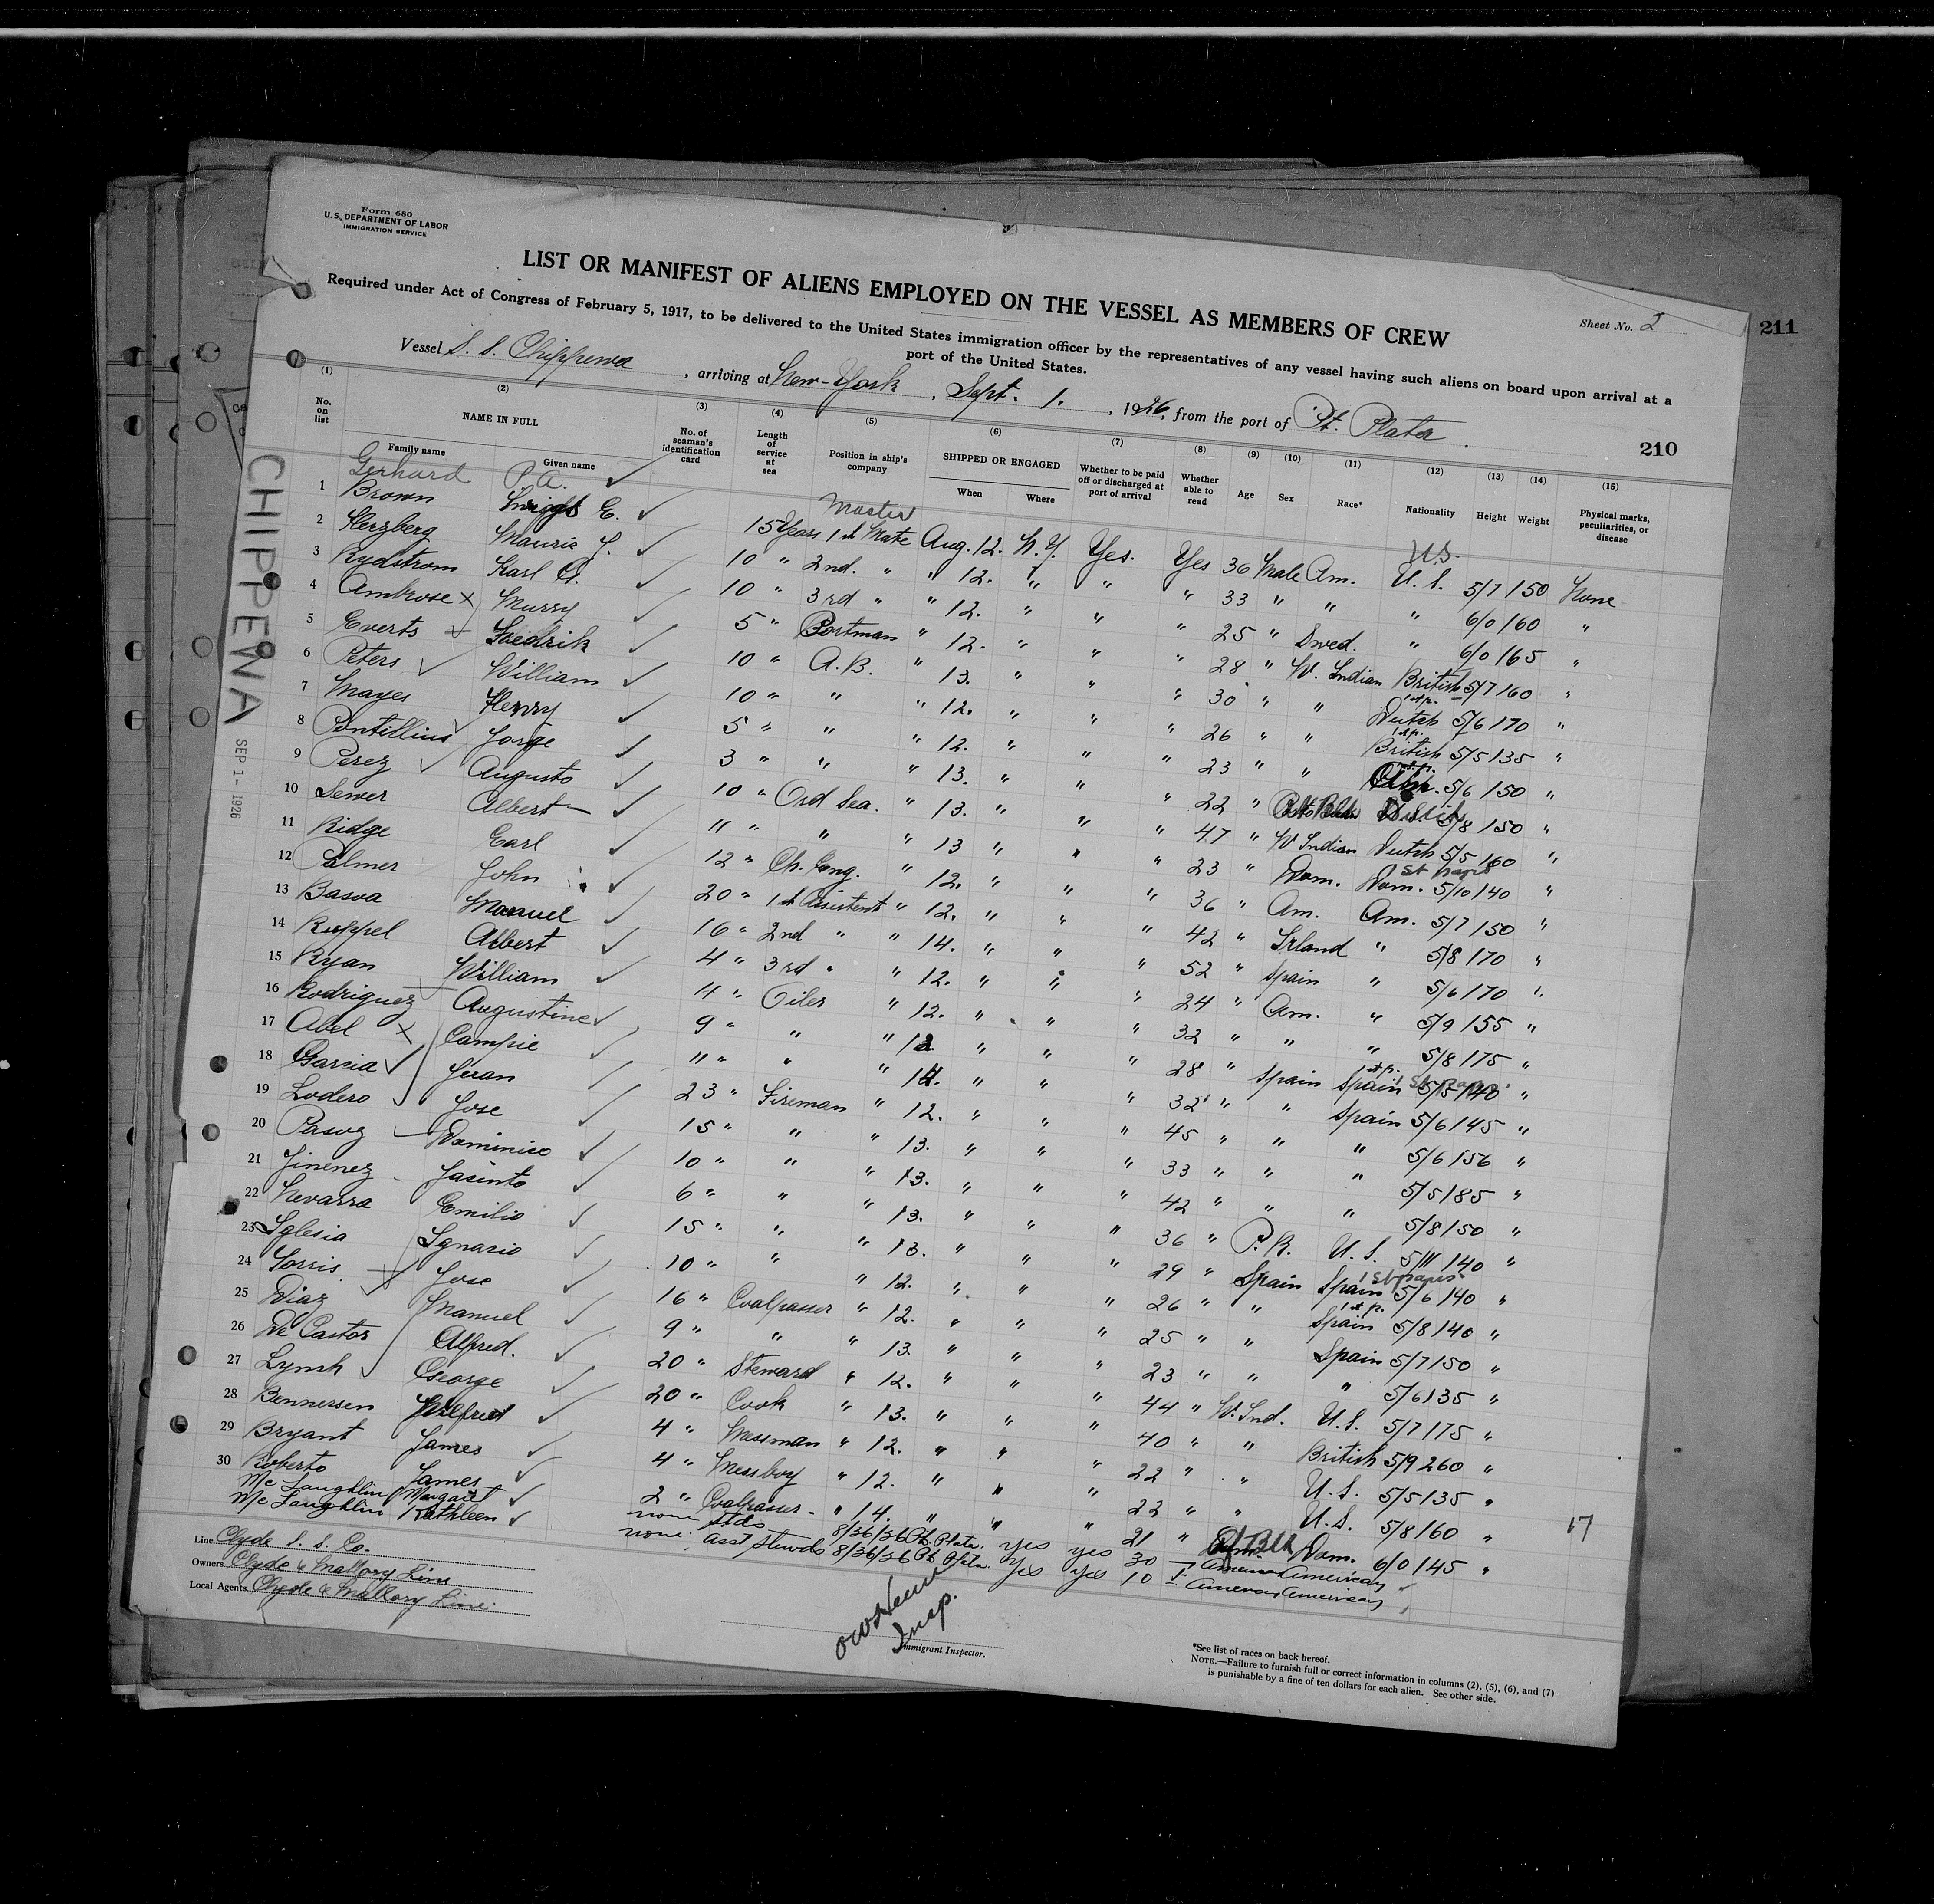 Form 680
U.S. DEPARTMENT OF LABOR
IMMIGRATION SERVICE
LIST OR MANIFEST OF ALIENS EMPLOYED ON THE VESSEL AS MEMBERS OF CREW
Sheet No. 2
211
Required under Act of Congress of February 5, 1917, to be delivered to the United States immigration officer by the representatives of any vessel having such aliens on board upon arrival at a
port of the United States.
Vessel S. S. Chippewa, arriving at New-York, Sept. 1., 1926, from the port of Pt. Plata.
210
(1) (2) (3) (4) (5) (6) (7) (8) (9) (10) (11) (12) (13) (14) (15)
No. on list NAME IN FULL Family name Given name No. of seaman's identification card Length of service at sea Position in ship's company SHIPPED OR ENGAGED When Where Whether to be paid off or discharged at port of arrival Whether able to read Age Sex Race* Nationality Height Weight Physical marks, peculiarities, or disease
Gerhard P. A. Master U.S.
1 Brown E. 15 Years 1st Mate Aug. 12. N. Y. Yes. Yes 36 Male Am. U. S. 5/7 150 None
2 Herzberg Mauris J. 10 " 2nd. " " 12. " " " 33 " " " 6/0 160 "
3 Rydstrom Karl A. 10 " 3rd " " 12. " " " 25 " Swed. " 6/0 165 "
4 Ambrose Murry 5 " Bortman " 12. " " " 28 " W. Indian British 5/7 160 "
5 Everts Fredrik 10 " A. B. " 13. " " " 30 " " Dutch 5/6 170 "
6 Peters William 10 " " " 12. " " " 26 " " British 5/5 135 "
7 Mayes Henry 5 " " " 12. " " " 23 " " 5/6 150 "
8 Pontillius Jorge 3 " " " 13. " " " 22 " 5/8 150 "
9 Perez Augusto 10 " Ord Sea. " 13. " " " 47 " W Indian Dutch 5/5 160 "
10 Sewer Albert 11 " " " 13 " " " 23 " Dom. Dom. 5/10 140 "
11 Ridge Earl 12 " Ch. Eng. " 12. " " " 36 " Am. Am. 5/7 150 "
12 Palmer John 20 " 1st Assistent " 12. " " " 42 " Irland " 5/8 170 "
13 Basoa Manuel 16 " 2nd " " 14. " " " 52 " Spain " 5/6 170 "
14 Ruppel Albert 4 " 3rd " " 12. " " " 24 " Am. " 5/9 155 "
15 Ryan William 4 " Oiler " 12. " " " 32 " " " 5/8 175 "
16 Rodriguez Augustine 9 " " " 12 " " " 28 " Spain Spain 5/5 140 "
17 Abel Campie 11 " " " 14. " " " 32 " " Spain 5/6 145 "
18 Garcia Juan 23 " Fireman " 12. " " " 45 " " " 5/6 156 "
19 Lodero Jose 15 " " " 13. " " " 33 " " " 5/5 185 "
20 Pasoz Dominico 10 " " " 13. " " " 42 " " " 5/8 150 "
21 Jinenez Jasinto 6 " " " 13. " " " 36 " P. R. U. S. 5/11 140 "
22 Nevarra Emilio 15 " " " 13. " " " 29 " Spain Spain 5/6 140 "
23 Iglesia Ignasio 10 " " " 12. " " " 26 " " Spain 5/8 140 "
24 Torris Jose 16 " Coalpasser " 12. " " " 25 " " Spain 5/7 150 "
25 Diaz Manuel 9 " " " 13. " " " 23 " " " 5/6 135 "
26 De Castos Alfred. 20 " Steward " 12. " " " 44 " W. Ind. U. S. 5/7 175 "
27 Lynsh George 20 " Cook " 13. " " " 40 " " British 5/9 260 "
28 Bennersen Wilfred 4 " Messman " 12. " " " 22 " " U. S. 5/5 135 "
29 Bryant James 4 " Messboy " 12. " " " 22 " " U. S. 5/8 160 "
30 Roberto James 2 " Coalpasser - " 14. " " " 21 " Dom. 6/0 145 "
Mc Laughlin Margaret none Stds 8/26/26 Pt. Plata. yes yes 30 F American American
Mc Laughlin Kathleen none asst Stwds 8/26/26 Pt. Plata yes yes 10 F. American American
17
CHIPPEWA
SEP 1 - 1926
Line Clyde S. S. Co.
Owners Clyde & Mallory Line
Local Agents Clyde & Mallory Line.
Insp.
Immigrant Inspector.
*See list of races on back hereof.
NOTE.—Failure to furnish full or correct information in columns (2), (5), (6), and (7)
is punishable by a fine of ten dollars for each alien. See other side.